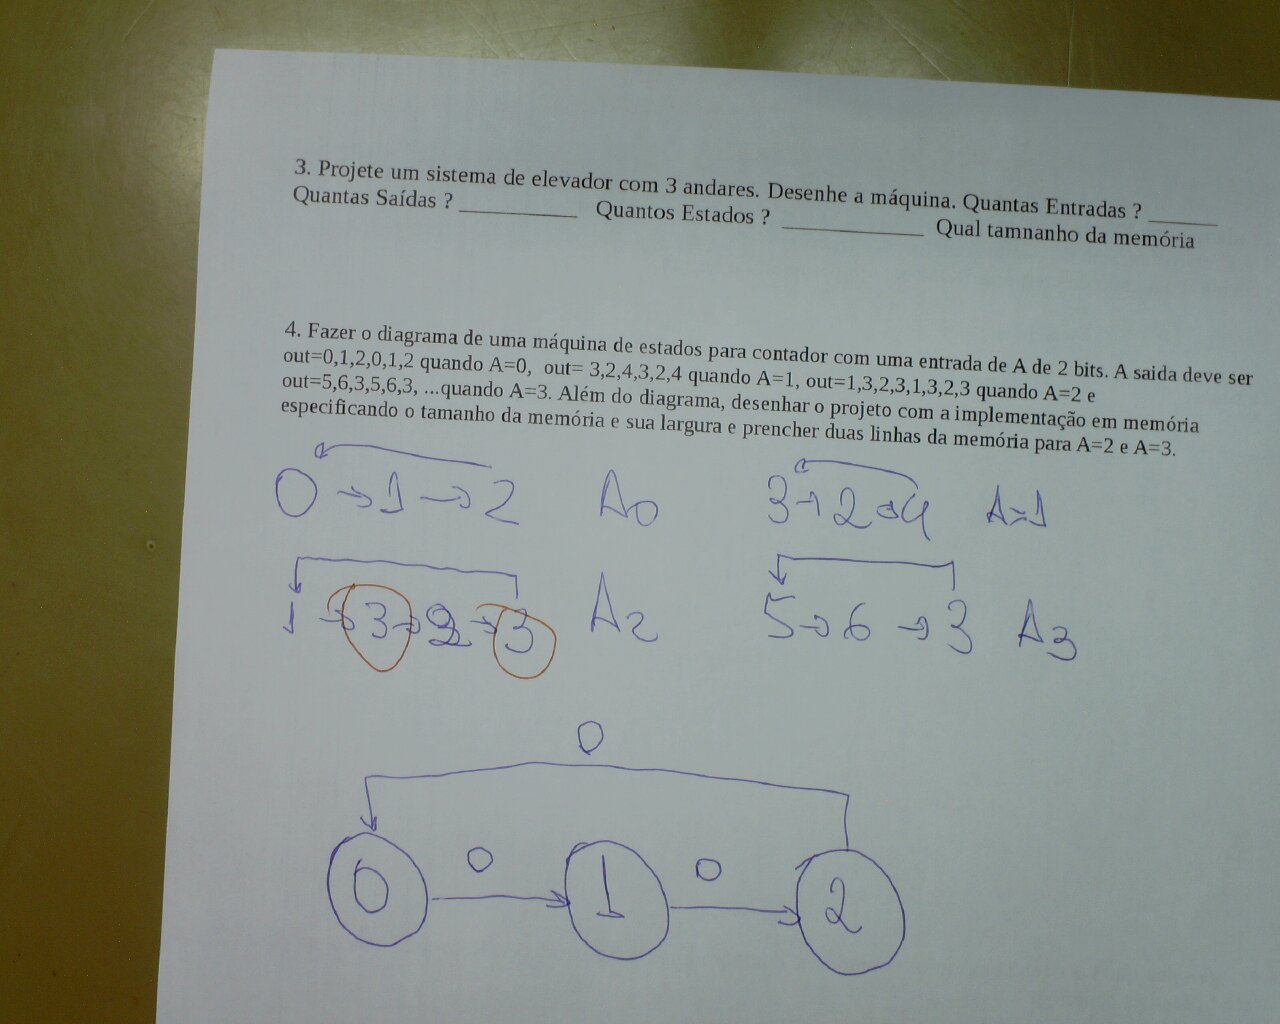 3. Projete um sistema de elevador com 3 andares. Desenhe a máquina. Quantas Entradas ? ______
Quantas Saídas ? __________ Quantos Estados ? ____________ Qual tamnanho da memória
4. Fazer o diagrama de uma máquina de estados para contador com uma entrada de A de 2 bits. A saida deve ser
out=0,1,2,0,1,2 quando A=0, out= 3,2,4,3,2,4 quando A=1, out=1,3,2,3,1,3,2,3 quando A=2 e
out=5,6,3,5,6,3, ...quando A=3. Além do diagrama, desenhar o projeto com a implementação em memória
especificando o tamanho da memória e sua largura e prencher duas linhas da memória para A=2 e A=3.
0 → 1 → 2 A0 3 → 2 → 4 A=1
1 → 3 → 2 → 3 A2 5 → 6 → 3 A3
0
0 0
0 1 2